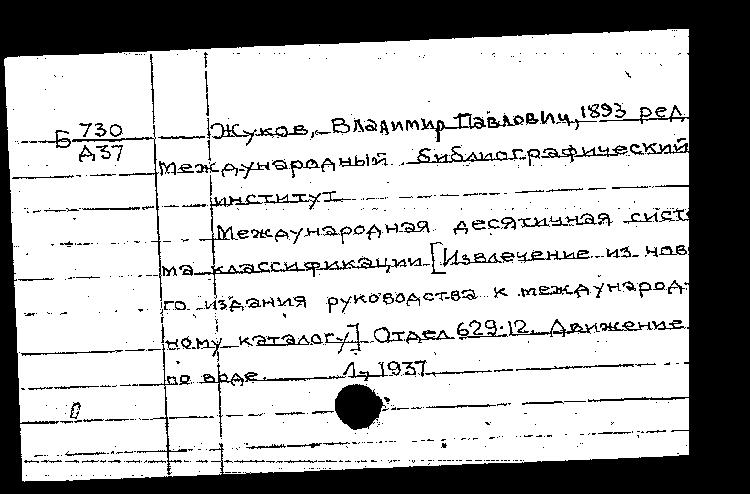 Б 730 Жуков, Владимир Павлович, 1893 ред
Д37
Международный библиографический
институт
Международная десятичная систе
ма классификации [Извлечение из ново
го издания руководства к международ-
ному каталогу] Отдел 629.12. Движение
по воде. Л., 1937.